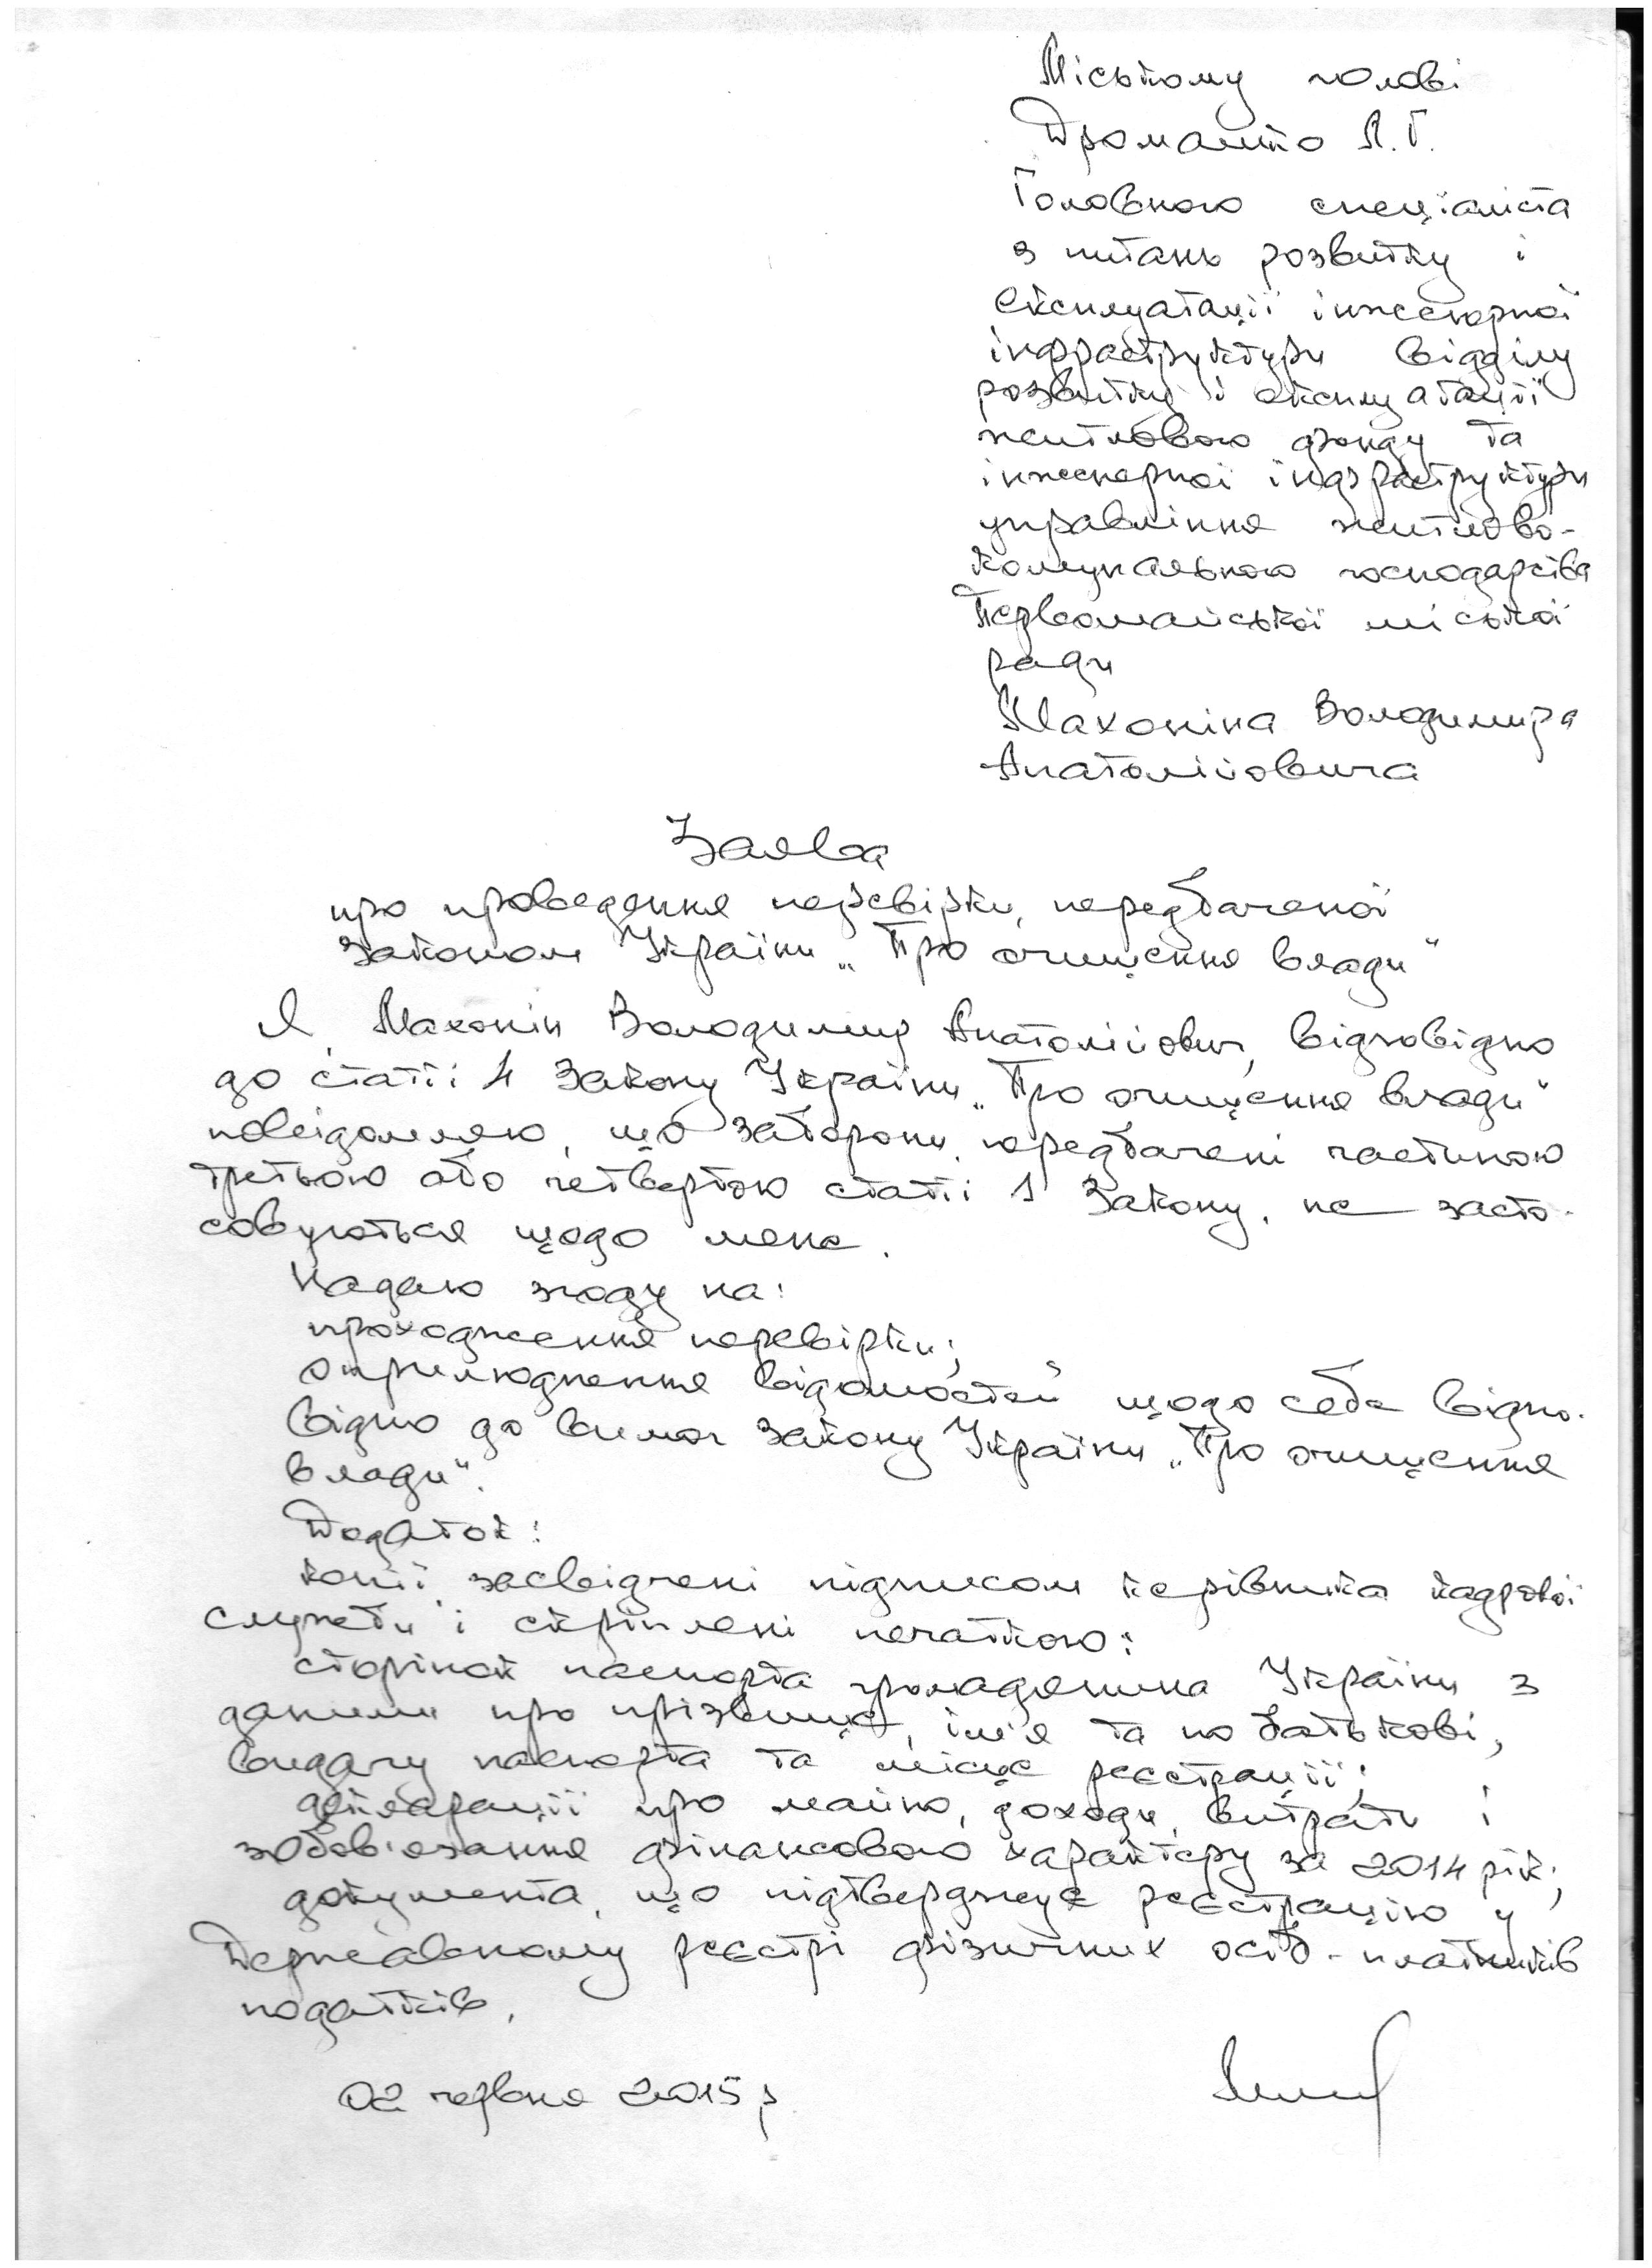 Міському голові
Дромашко Л.Г.
Головного спеціаліста
з питань розвитку і
експлуатації інженерної
інфраструктури відділу
розвитку і експлуатації
житлового фонду та
інженерної інфраструктури
управління житлово-
комунального господарства
Первомайської міської
ради
Махоніна Володимира
Анатолійовича
Заява
про проведення перевірки, передбаченої
Законом України „Про очищення влади"
Я, Махонін Володимир Анатолійович, відповідно
до статті 4 Закону України „Про очищення влади"
повідомляю, що заборони, передбачені частиною
третьою або четвертою статті 1 Закону, не засто-
совуються щодо мене.
Надаю згоду на:
проходження перевірки;
оприлюднення відомостей щодо себе відпо-
відно до вимог Закону України „Про очищення
влади".
Додаток:
копії, засвідчені підписом керівника кадрової
служби і скріплені печаткою:
сторінок паспорта громадянина України з
даними про прізвище, ім'я та по батькові,
видачу паспорта та місце реєстрації;
декларації про майно, доходи, витрати і
зобов'язання фінансового характеру за 2014 рік;
документа, що підтверджує реєстрацію у
Державному реєстрі фізичних осіб-платників
податків.
02 червня 2015 р